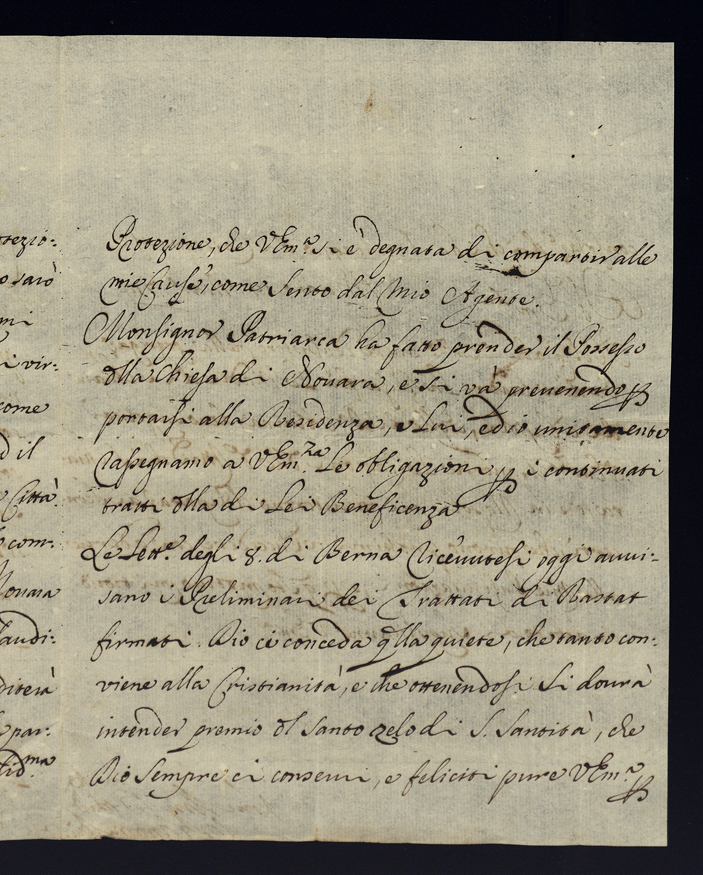 Protezione, che VEm.ª si è degnata di compartir alle
mie Cause, come Sento dal Mio Agente.
Monsignor Patriarca ha fatto prender il Possesso
dlla Chiesa di Novara, e si và prevenendo p
portarsi alla Residenza, e Lui, ed io unitamente
rassegnamo a VEm.za Le obligazioni p i continuati
tratti dlla di Lei Beneficenza
Le Lett.e degli 8. di Berna ricevutesi oggi avvi-
sano i Preliminari dei Trattati di Rastat
firmati. Dio ci conceda qlla quiete, che tanto con-
viene alla Cristianità, e che ottenendosi Si dovrà
intender premio dl Santo zelo di S. Santità, che
Dio Sempre ci conservi, e feliciti pure VEm.ª p
tezio:
o sarò
mi
vir:
come
d il
Città
com:
Novara
audi:
diterà
par:
ma